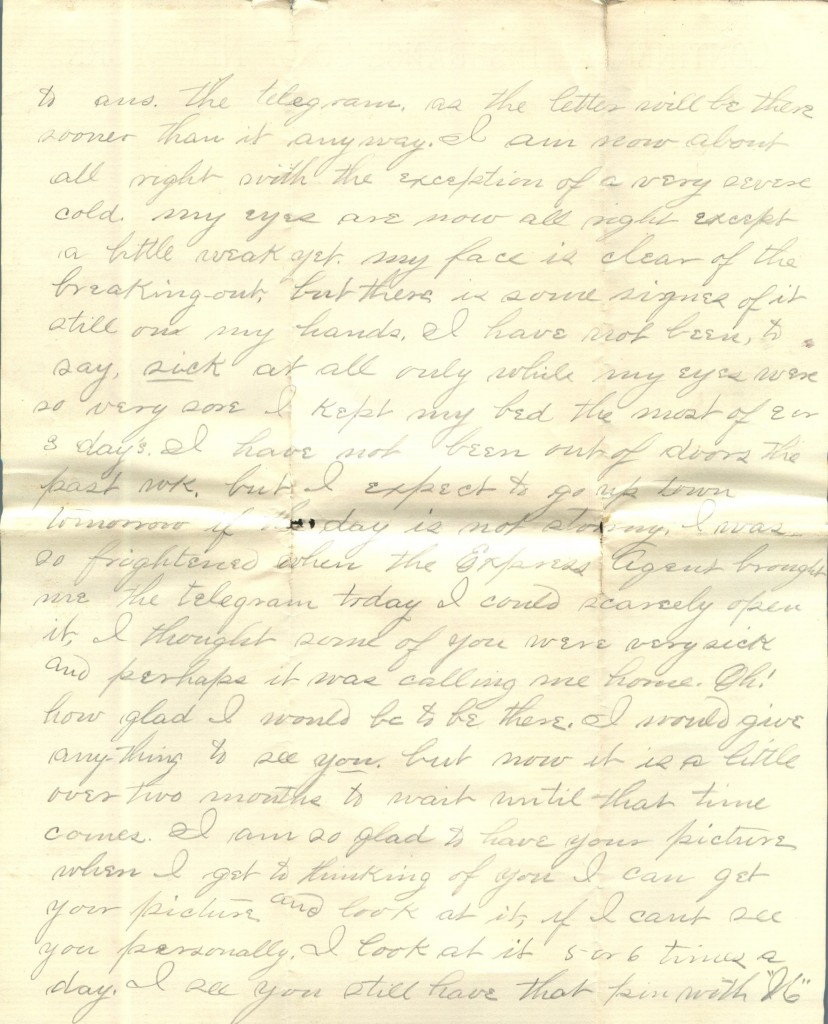 to ans. the telegram, as the letter will be there
sooner than it any way. I am now about
all right with the exception of a very severe
cold. my eyes are now all right except
a little weak yet. my face is clear of the
breaking-out, but there is some signes of it
still on my hands. I have not been, to
say, sick at all only while my eyes were
so very sore I kept my bed the most of 2 or
3 days. I have not been out of doors the
past wk. but I expect to go up town
tomorrow if the day is not stormy. I was
so frightened when the Express Agent brought
me the telegram today I could scarcely open
it, I thought some of you were very sick
and perhaps it was calling me home. Oh!
how glad I would be to be there. I would give
any-thing to see you. but now it is a little
over two months to wait until that time
comes. I am so glad to have your picture
when I get to thinking of you I can get
your picture and look at it, if I cant see
you personally. I look at it 5 or 6 times a
day. I see you still have that pin with